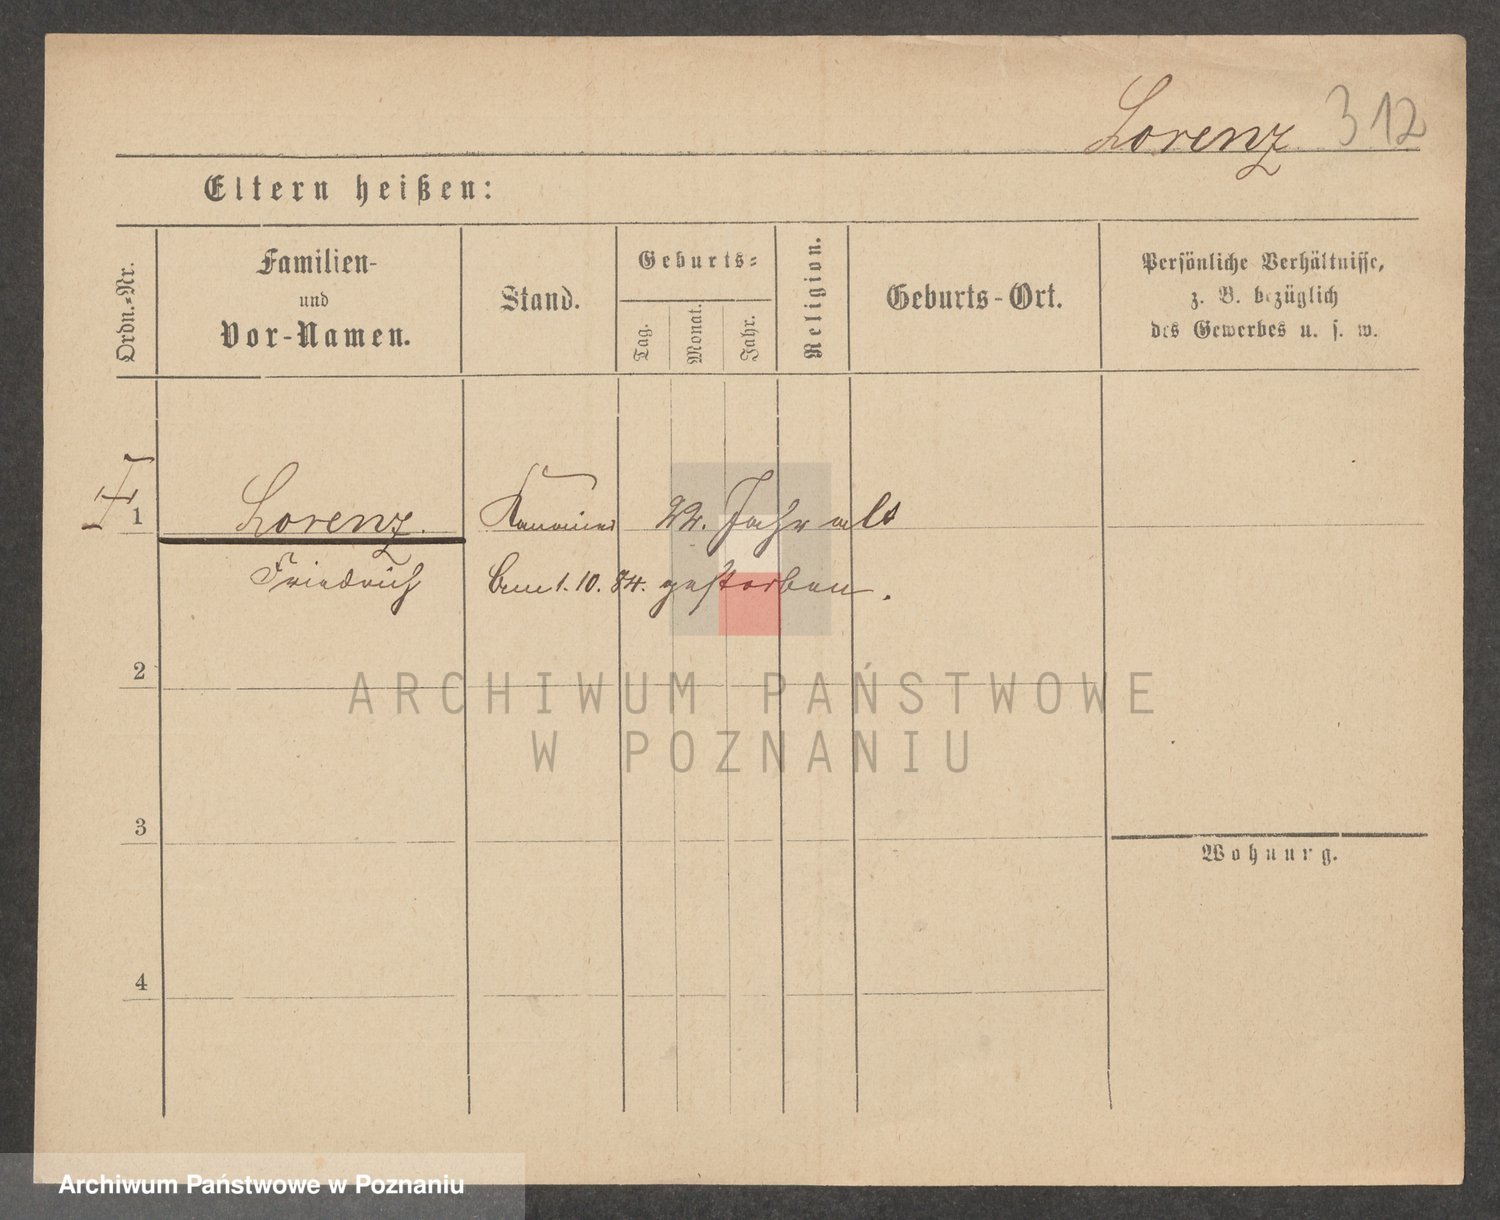 Lorenz 312
Eltern heißen:
Ordn.-Nr.
Familien-
und
Vor-Namen.
Stand.
Geburts-
Tag.
Monat.
Jahr.
Religion.
Geburts-Ort.
Persönliche Verhältnisse,
z. B. bezüglich
des Gewerbes u. s. w.
1 Lorenz. 22. Jahr alt
Friedrich 1. 10. 84. gestorben.
2
ARCHIWUM PAŃSTWOWE
W POZNANIU
3
Wohnung.
4
Archiwum Państwowe w Poznaniu